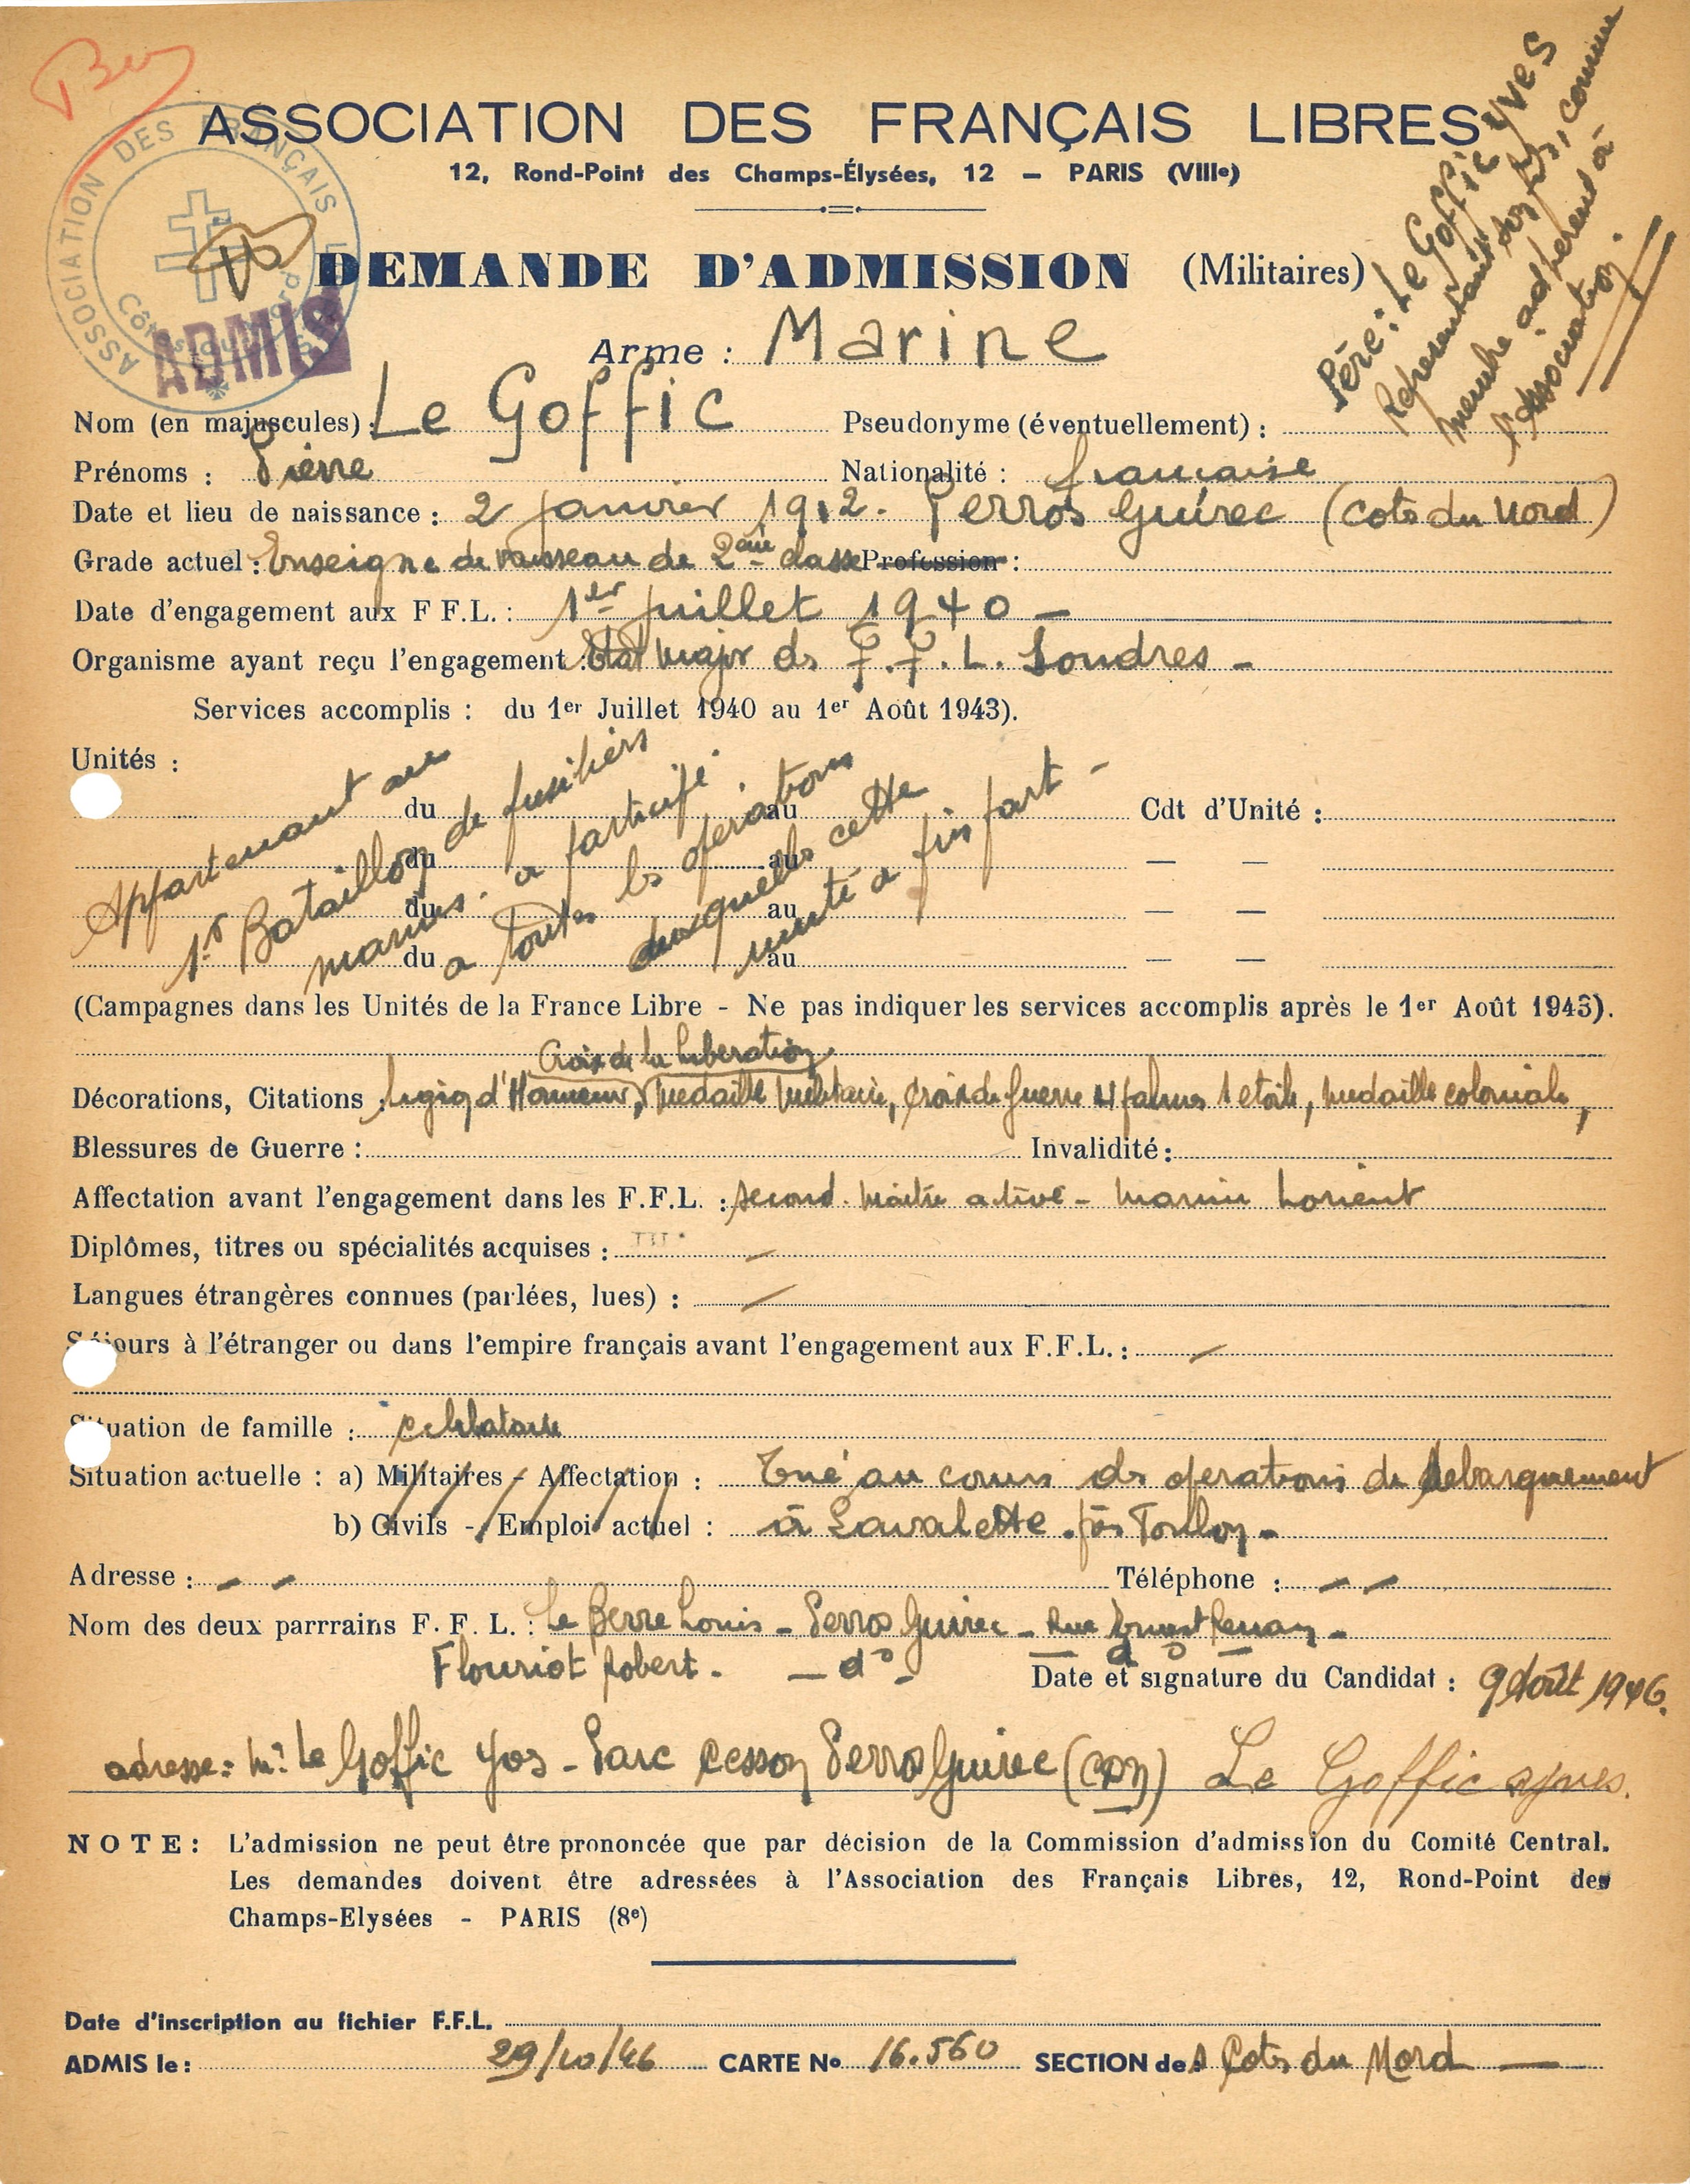 ASSOCIATION DES FRANÇAIS LIBRES
12, Rond-Point des Champs-Élysées, 12 — PARIS (VIIIe)
Père: Le Goffic Yves
Représentant son fils, comme
membre adhérent à
l'Association.
ASSOCIATION DES FRANÇAIS
Côtes du Nord
ADMIS
DEMANDE D'ADMISSION (Militaires)
Arme : Marine
Nom (en majuscules) : Le Goffic Pseudonyme (éventuellement) :
Prénoms : Pierre Nationalité : française
Date et lieu de naissance : 2 janvier 1912. Perros Guirec (Cotes du Nord)
Grade actuel : Enseigne de vaisseau de 2ème classe Profession :
Date d'engagement aux F F.L. : 1er juillet 1940 —
Organisme ayant reçu l'engagement : Etat Major des F.F.L. Londres -
Services accomplis : du 1er Juillet 1940 au 1er Août 1943).
Unités :
du au Cdt d'Unité :
du au — —
du au — —
du au — —
Appartenant au
1er Bataillon de fusiliers
marins. a participé
a toutes les opérations
auxquelles cette
unité a pris part -
(Campagnes dans les Unités de la France Libre - Ne pas indiquer les services accomplis après le 1er Août 1943).
Croix de la Liberation
Décorations, Citations : Légion d'Honneur, Médaille Militaire, Croix de Guerre 4 palmes 1 etoile, Médaille coloniale,
Blessures de Guerre : Invalidité :
Affectation avant l'engagement dans les F.F.L. : second-maitre active - Marine Lorient
Diplômes, titres ou spécialités acquises : —
Langues étrangères connues (parlées, lues) : —
Séjours à l'étranger ou dans l'empire français avant l'engagement aux F.F.L. : —
Situation de famille : célibataire
Situation actuelle : a) Militaires - Affectation : Tué au cours des operations de debarquement
b) Civils - Emploi actuel : à Lavalette. près Toulon -
Adresse : — — Téléphone : — —
Nom des deux parrrains F. F. L. : Le Berre Louis - Perros Guirec - Rue Ernest Renan -
Flouriot Robert. - do - do
Date et signature du Candidat : 9 Août 1946.
adresse : Mr Le Goffic Yves - Parc Cesson Perros Guirec (CDN) Le Goffic yves.
NOTE : L'admission ne peut être prononcée que par décision de la Commission d'admission du Comité Central.
Les demandes doivent être adressées à l'Association des Français Libres, 12, Rond-Point des
Champs-Elysées - PARIS (8e)
Date d'inscription au fichier F.F.L.
ADMIS le : 29/10/46 CARTE No 16.560 SECTION des Cotes du Nord —